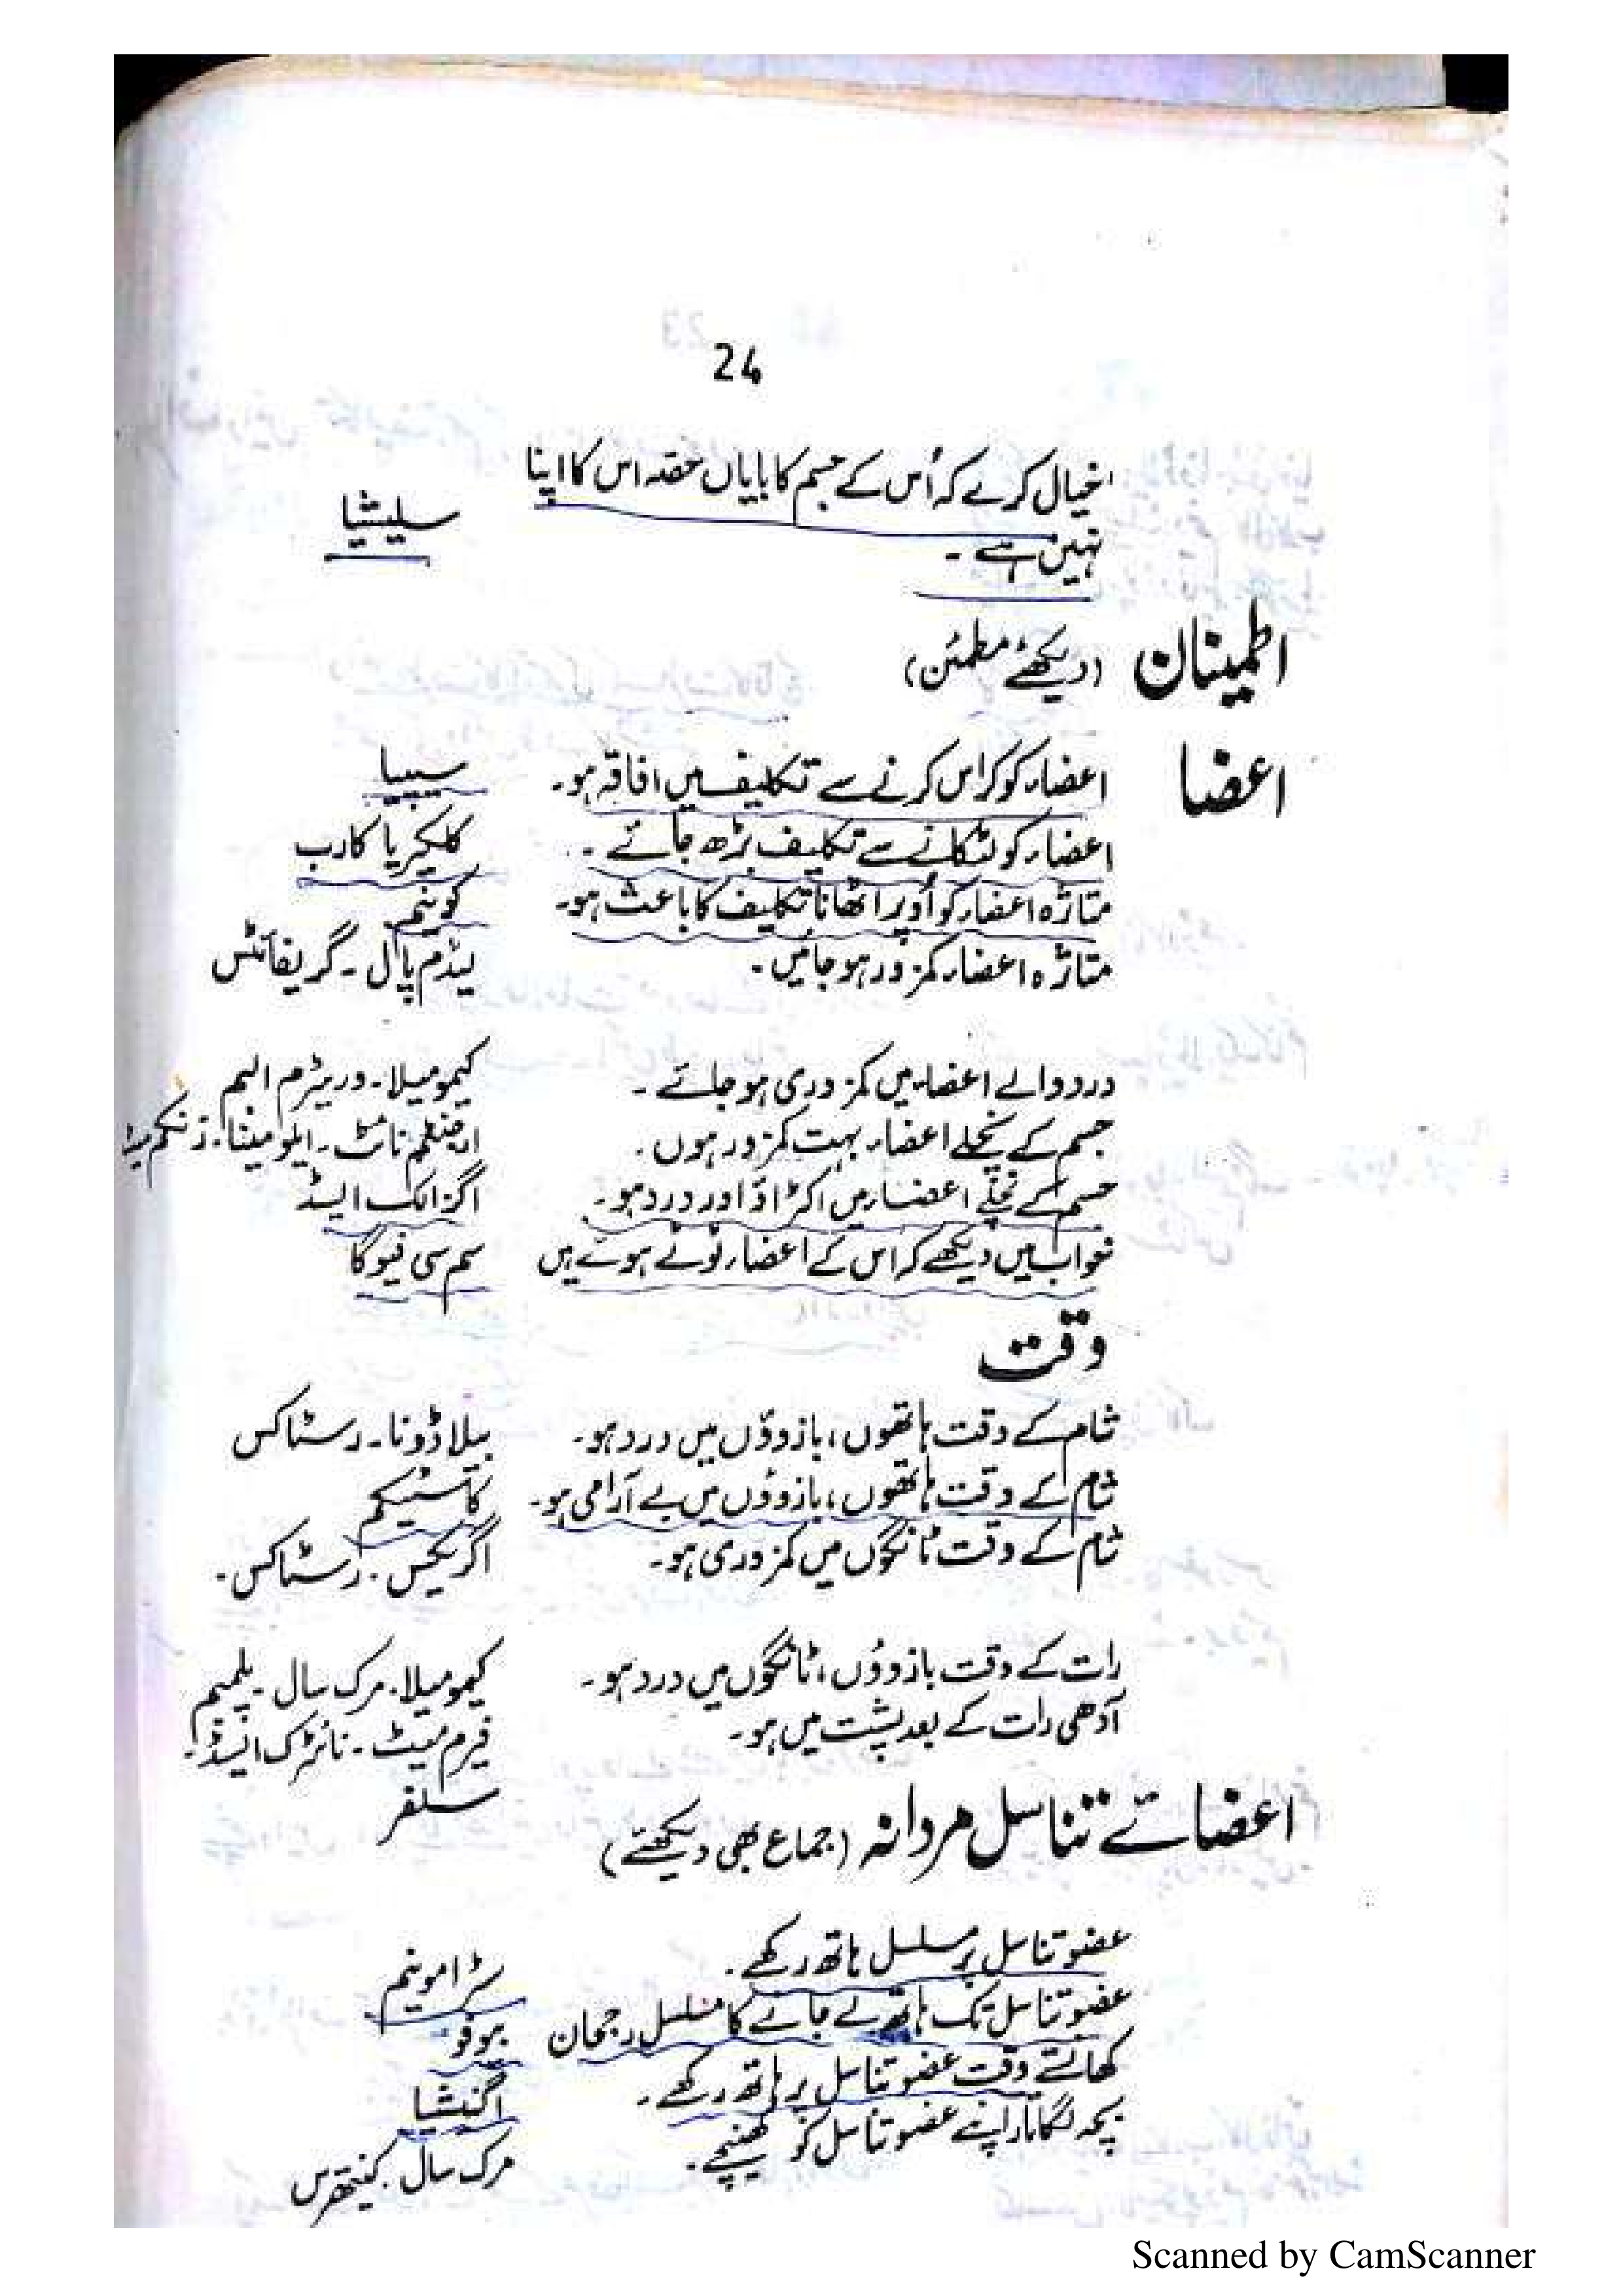 24
خیال کرے کہ اُس کے جسم کا بایاں حصہ اس کا اپنا
نہیں ہے ۔ سلیشیا
اطمینان (دیکھئے مطمئن)
اعضا اعضاء کو کراس کرنے سے تکلیف میں افاقہ ہو۔ سیپیا
اعضاء کو لٹکانے سے تکلیف بڑھ جائے ۔ کلکیریا کارب
متاثرہ اعضاء کو اُوپر اٹھانا تکلیف کا باعث ہو۔ کونیم
متاثرہ اعضاء کمزور ہو جائیں ۔ لیڈم پال ۔ گریفائٹس
درد والے اعضاء میں کمزوری ہو جائے ۔ کیمومیلا ۔ وریٹرم البم
جسم کے نچلے اعضاء بہت کمزور ہوں ۔ ارجنٹم نائٹ ۔ ایلومینا ۔ زنکم میٹ
جسم کے نچلے اعضاء میں اکڑاؤ اور درد ہو۔ اگزالک ایسڈ
خواب میں دیکھے کہ اس کے اعضاء ٹوٹے ہوئے ہیں سم سی فیوگا
وقت
شام کے وقت ہاتھوں، بازوؤں میں درد ہو۔ بیلاڈونا ۔ رسٹاکس
شام کے وقت ہاتھوں، بازوؤں میں بے آرامی ہو۔ کاسٹیکم
شام کے وقت ٹانگوں میں کمزوری ہو۔ اگریکس ۔ رسٹاکس ۔
رات کے وقت بازوؤں، ٹانگوں میں درد ہو۔ کیمومیلا ۔ مرک سال ۔ پلمبم
آدھی رات کے بعد پشت میں ہو۔ فیرم میٹ ۔ نائٹرک ایسڈ ۔
سلفر
اعضائے تناسل مردانہ (جماع بھی دیکھئے)
عضو تناسل پر مسلسل ہاتھ رکھے ۔ سٹرامونیم
عضو تناسل تک ہاتھ لے جانے کا مسلسل رجحان بیوفو
کھاتے وقت عضو تناسل پر ہاتھ رکھے ۔ اگنیشیا
بچہ لگاتار اپنے عضو تناسل کو کھینچے ۔ مرک سال ۔ کینتھرس
Scanned by CamScanner